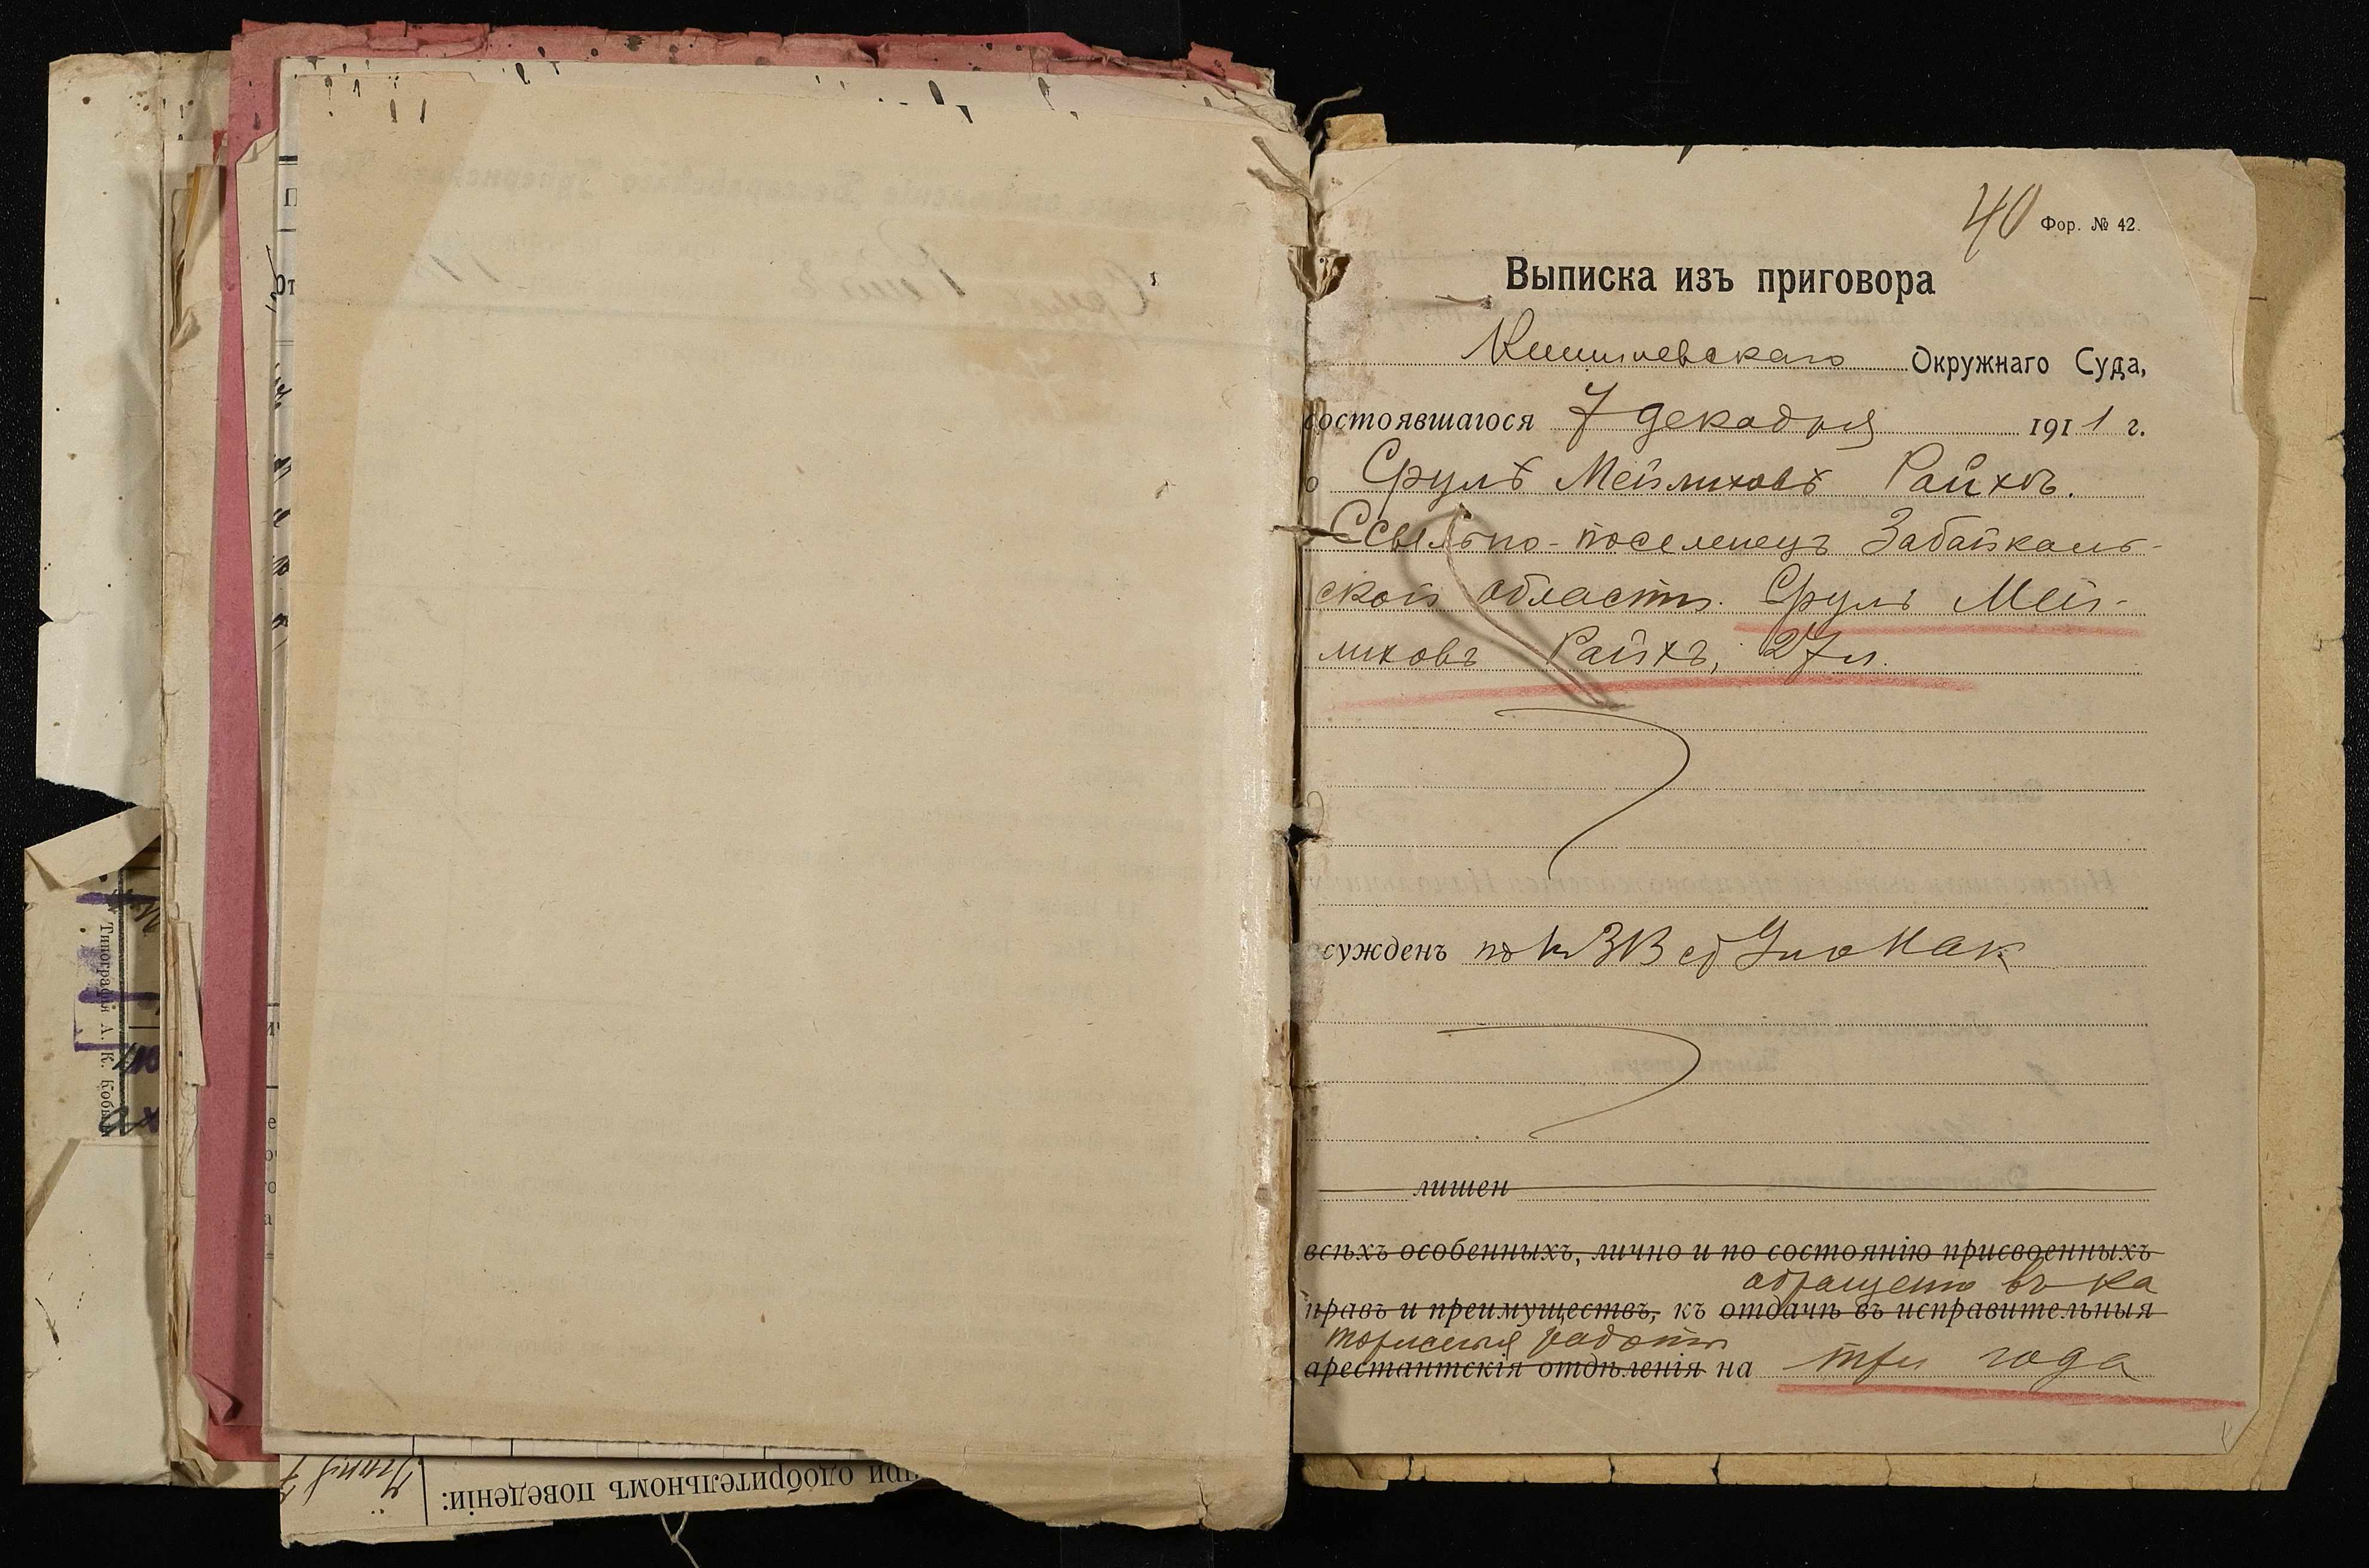 40 Фор. № 42.
Выписка изъ приговора
Кишиневскаго Окружнаго Суда,
состоявшагося 7 декабря 1911 г.
о Срулѣ Мейлиховѣ Райхѣ.
Ссыльно-поселенецъ Забайкаль-
ской области Сруль Мей-
лиховъ Райхъ, 27 л.
сужденъ по
лишен
всѣхъ особенныхъ, лично и по состоянію присвоенныхъ
обращенію въ ка
правъ и преимуществъ, къ отдачѣ въ исправительныя
торжныя работы
арестантскія отдѣленія на три года
при одобрительномъ поведеніи:
Типографія